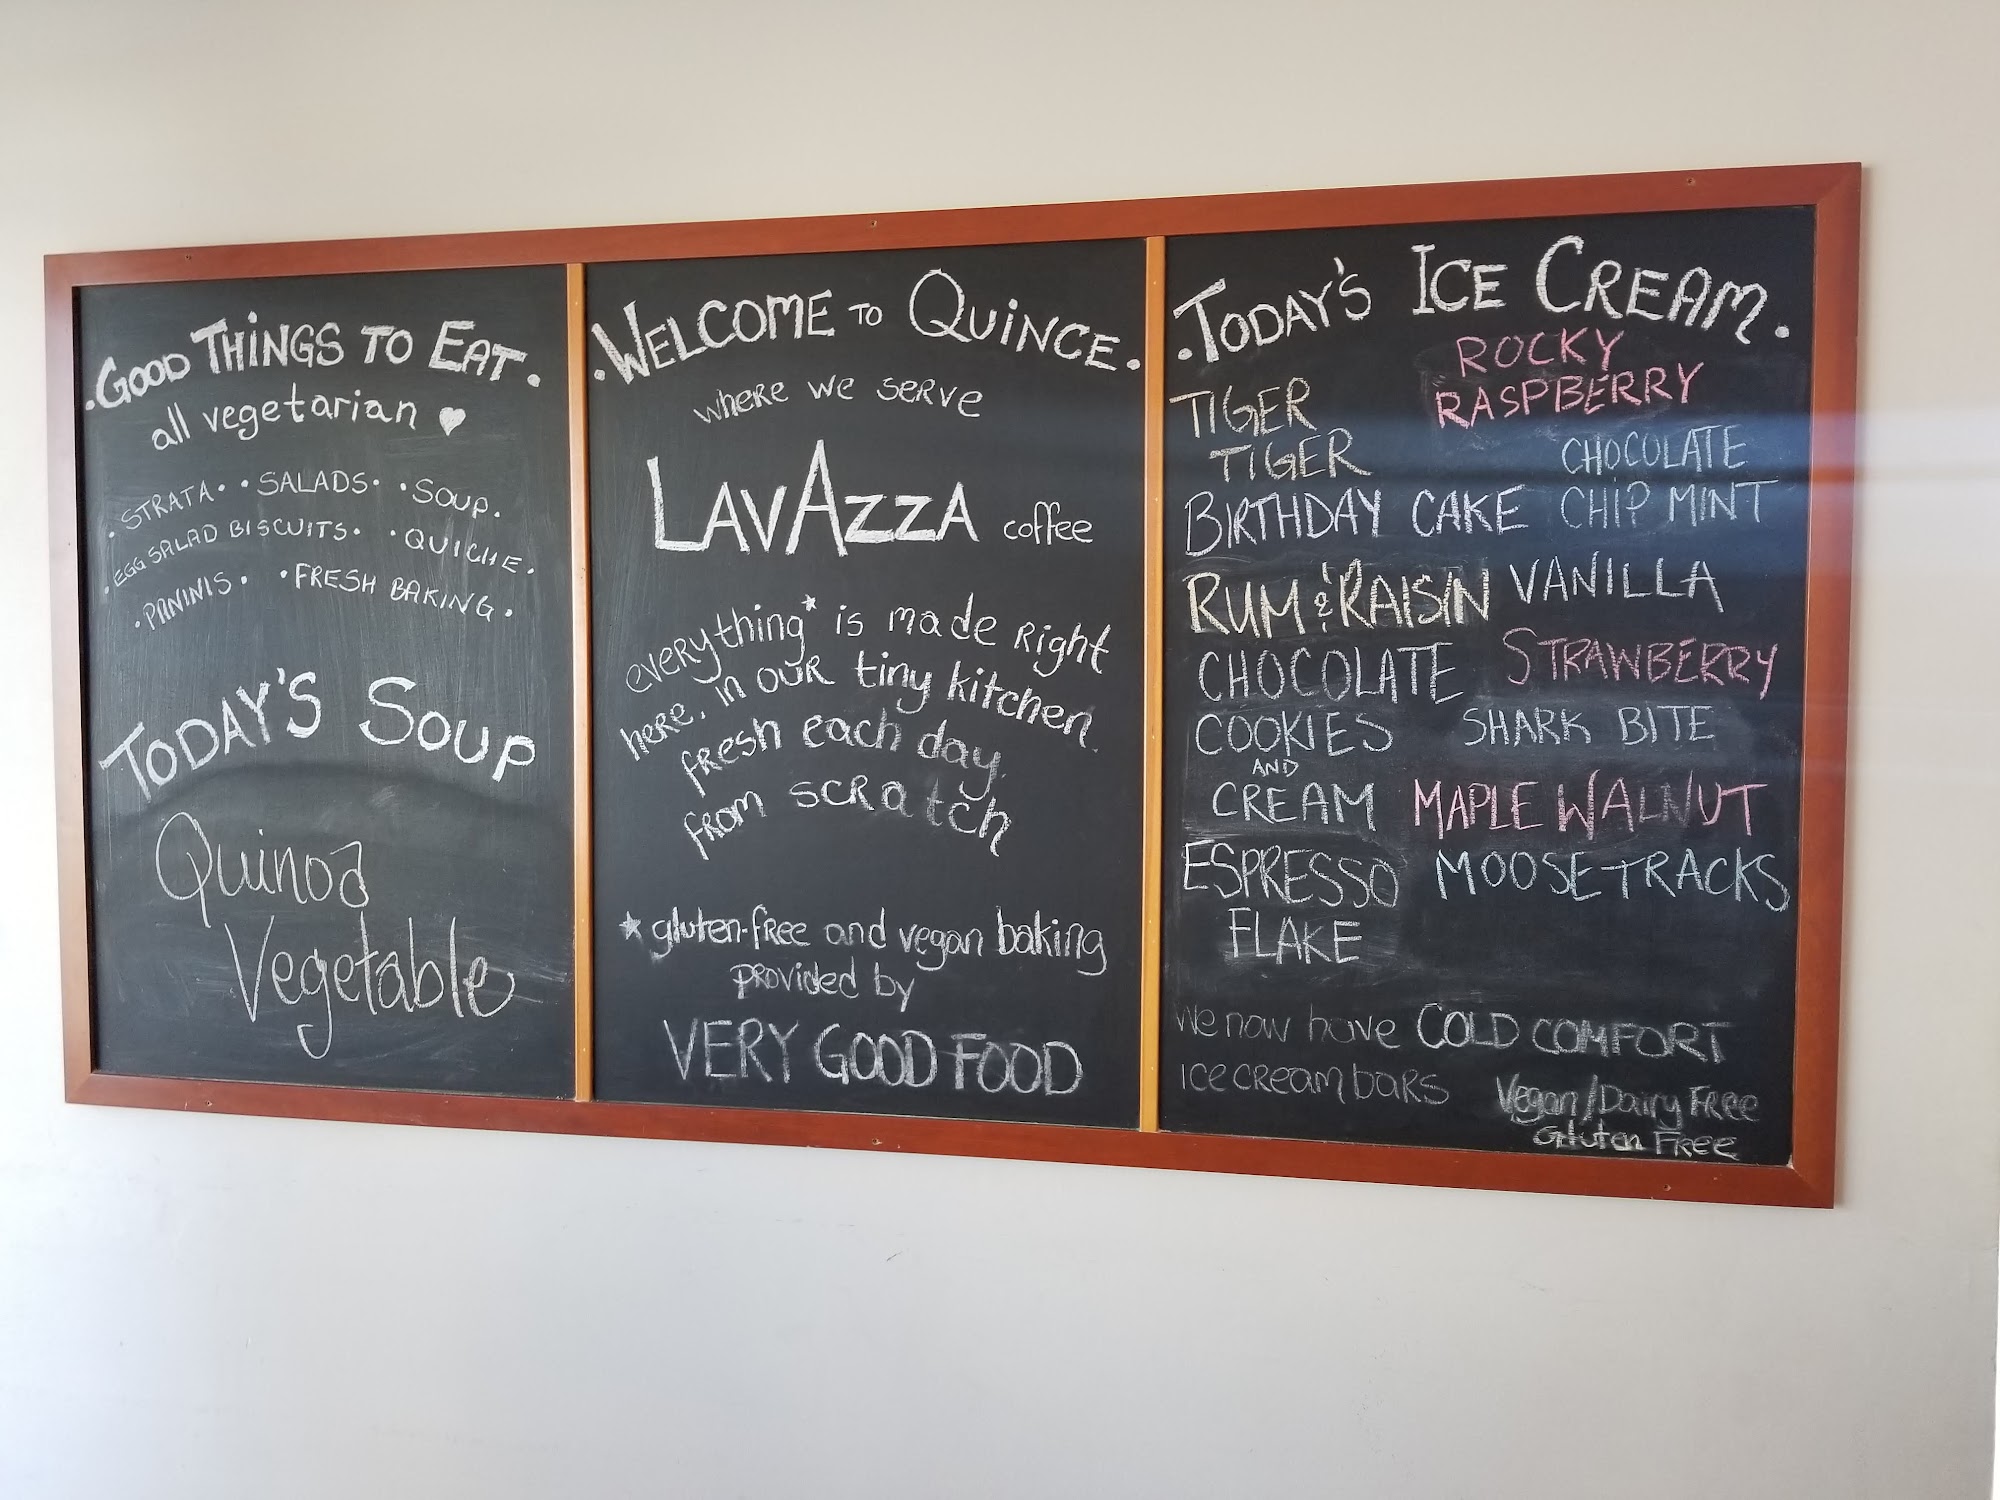 .GOOD THINGS TO EAT.
all vegetarian ♥
· STRATA · · SALADS · · SOUP.
· EGG SALAD BISCUITS · · QUICHE ·
· PANINIS · · FRESH BAKING ·
TODAY'S SOUP
Quinoa
Vegetable
.WELCOME TO QUINCE.
where we serve
LAVAZZA coffee
everything* is made right
here, in our tiny kitchen.
fresh each day.
from scratch
* gluten-free and vegan baking
provided by
VERY GOOD FOOD
.TODAY'S ICE CREAM.
TIGER
TIGER
BIRTHDAY CAKE
RUM & RAISIN
CHOCOLATE
COOKIES
AND
CREAM
ESPRESSO
FLAKE
ROCKY
RASPBERRY
CHOCOLATE
CHIP MINT
VANILLA
STRAWBERRY
SHARK BITE
MAPLE WALNUT
MOOSE-TRACKS
We now have COLD COMFORT
ice cream bars
Vegan/Dairy Free
Gluten Free